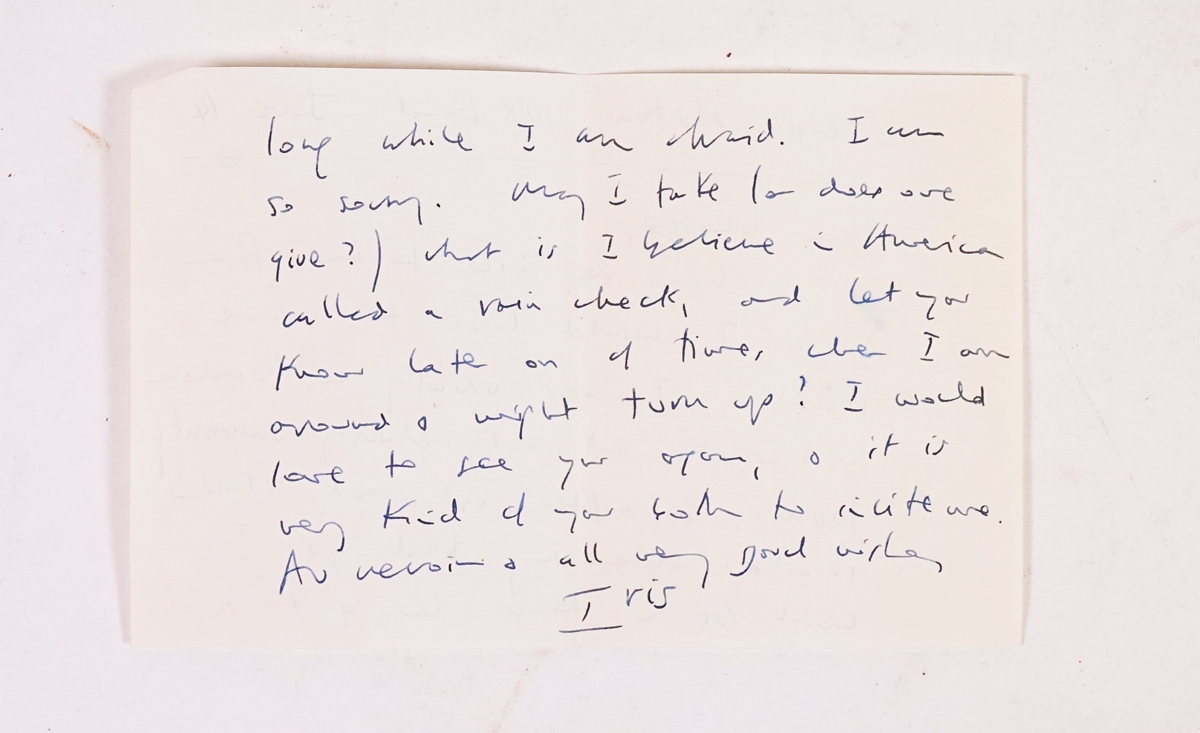 long while I am afraid. I am
so sorry. May I take (or does one
give?) what is I believe in America
called a rain check, and let you
know later on of times when I am
around & might turn up? I would
love to see you again, & it is
very kind of you both to invite me.
Au revoir & all very good wishes
Iris